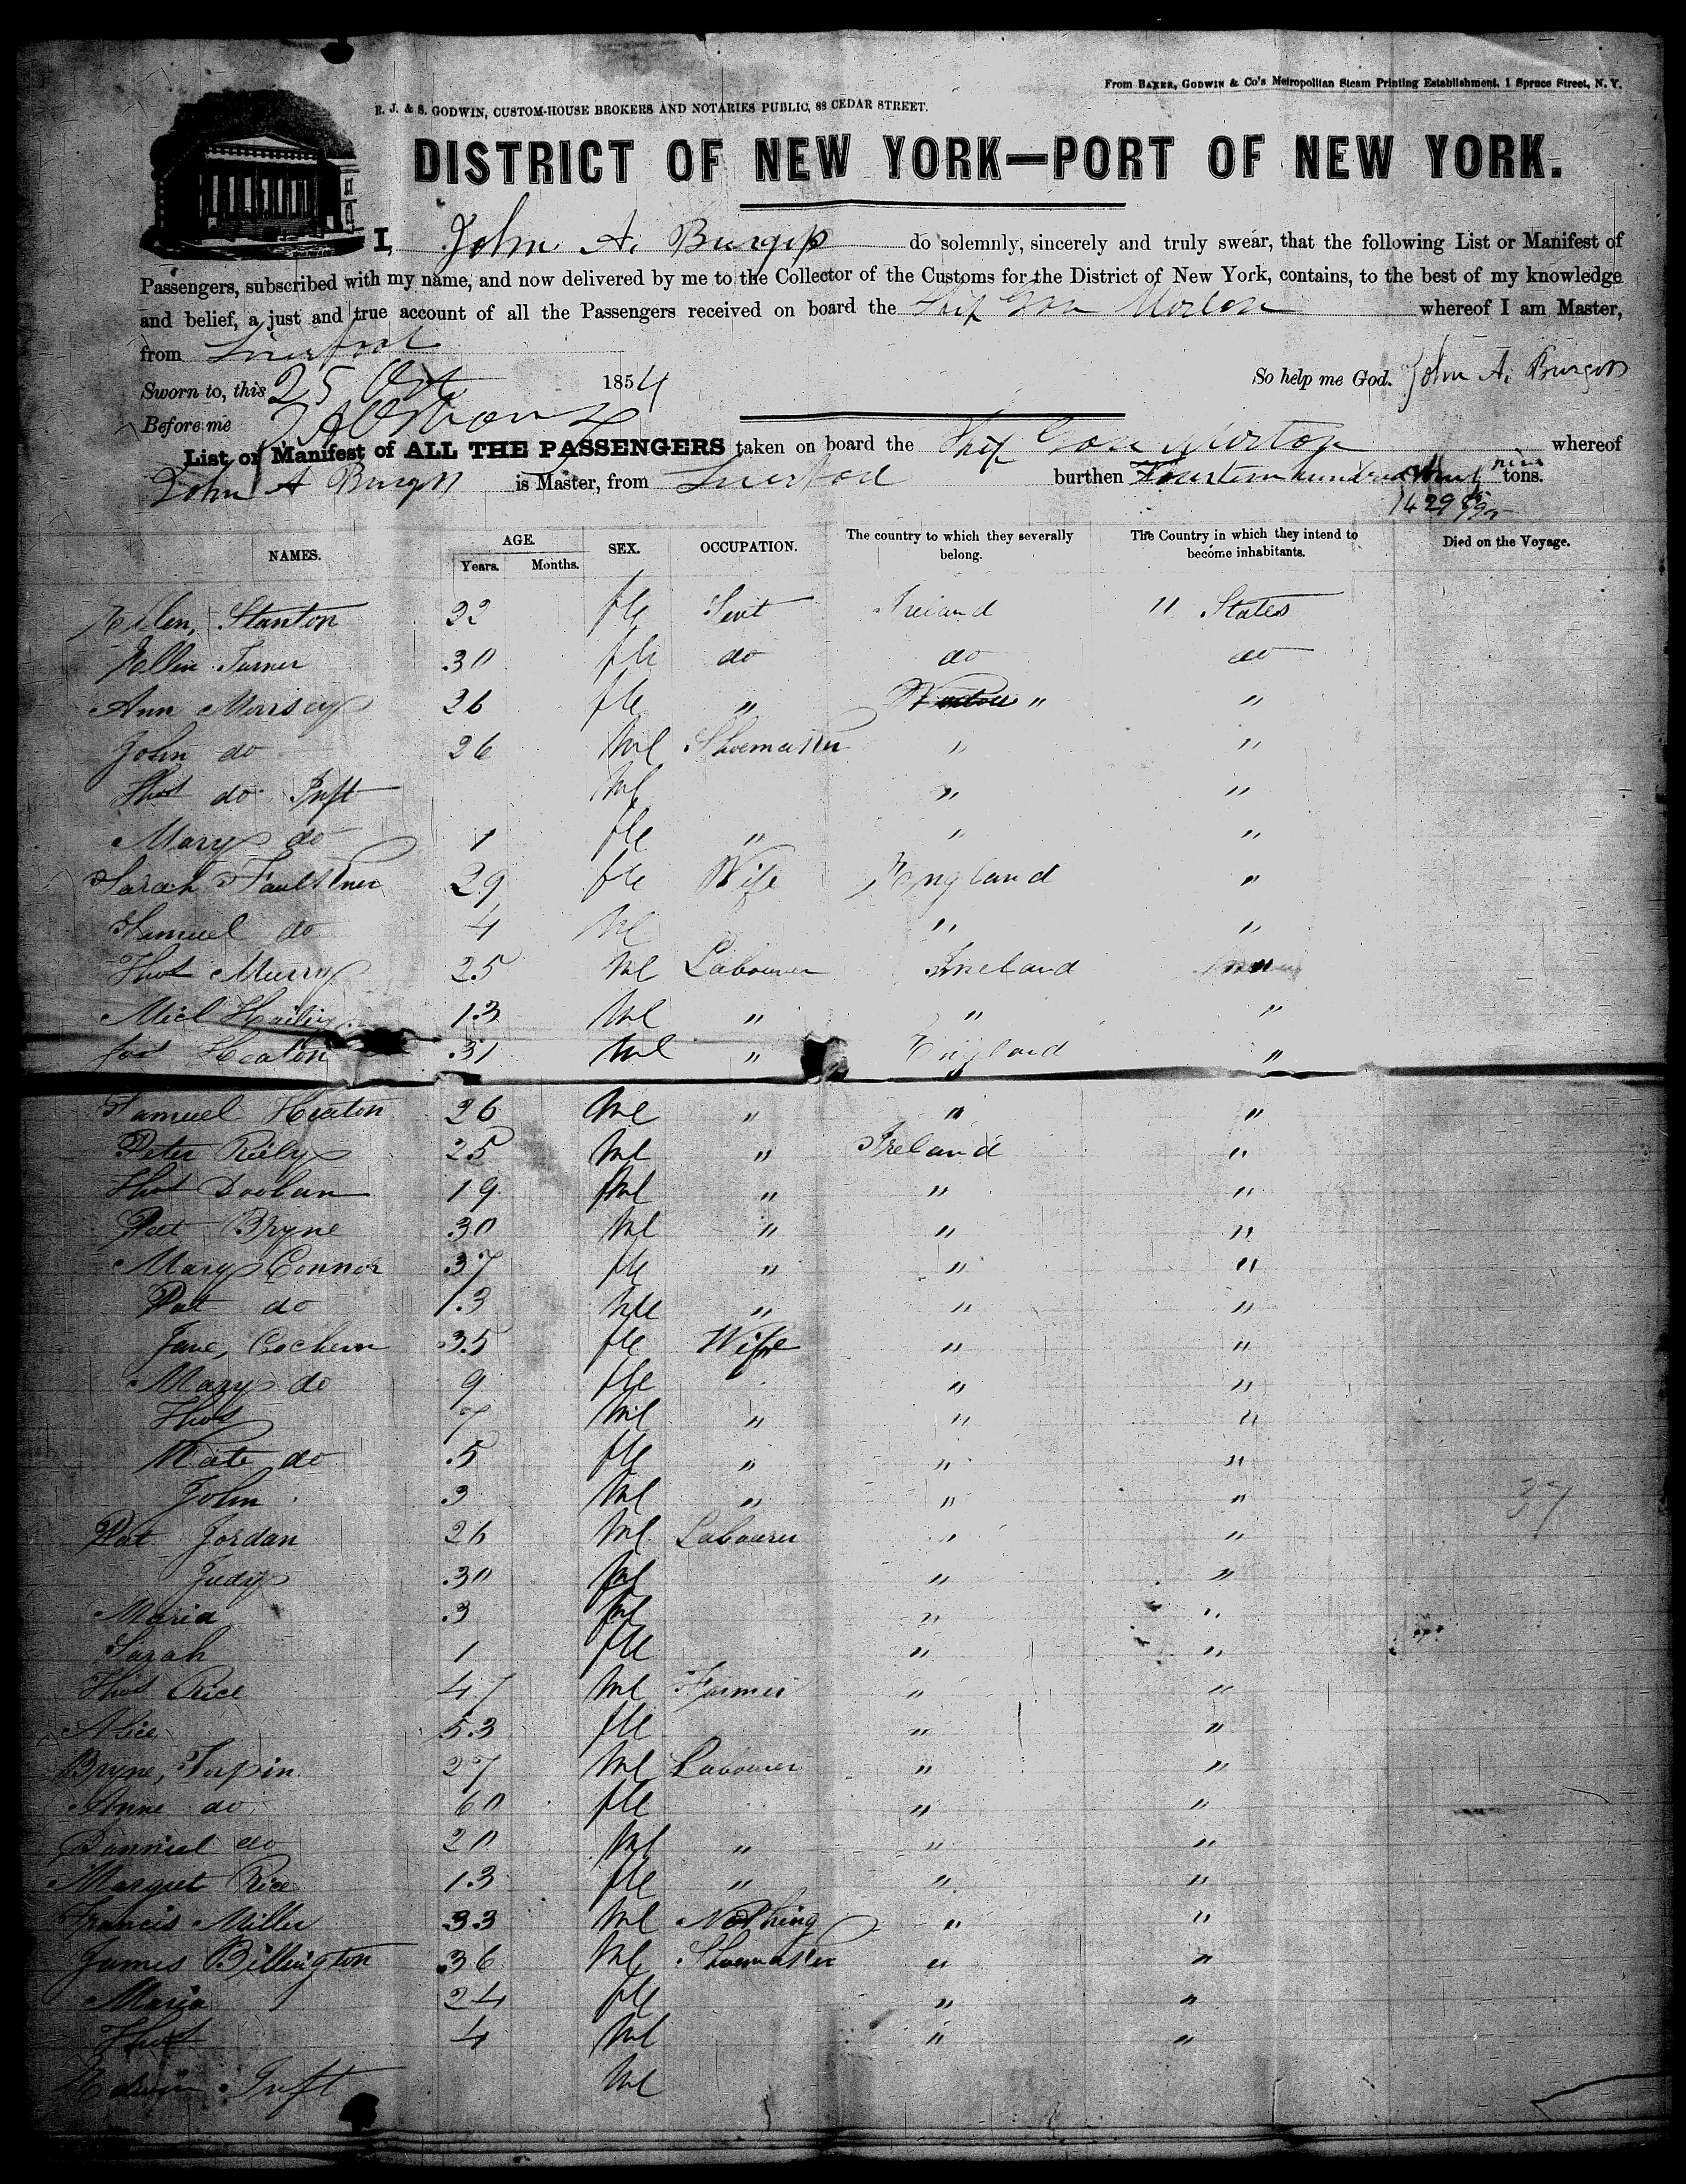 From BAKER, GODWIN & Co's Metropolitan Steam Printing Establishment, 1 Spruce Street, N.Y.
E. J. & S. GODWIN, CUSTOM-HOUSE BROKERS AND NOTARIES PUBLIC, 88 CEDAR STREET.
DISTRICT OF NEW YORK—PORT OF NEW YORK.
I, John A. Burgess do solemnly, sincerely and truly swear, that the following List or Manifest of
Passengers, subscribed with my name, and now delivered by me to the Collector of the Customs for the District of New York, contains, to the best of my knowledge
and belief, a just and true account of all the Passengers received on board the Ship Gov Morton whereof I am Master,
from Liverpool
Sworn to, this 25 Oct 1854 So help me God. John A. Burgess
Before me
List or Manifest of ALL THE PASSENGERS taken on board the Ship Gov Morton whereof
John A Burgess is Master, from Liverpool burthen Fourteen hundred nine tons.
1429
NAMES. AGE. Years. Months. SEX. OCCUPATION. The country to which they severally belong. The Country in which they intend to become inhabitants. Died on the Voyage.
Ellen, Stanton 22 fle Sevt Ireland " States
Ellen Turner 30 fle do do do
Ann Morrsey 26 fle " " "
John do 26 Ml Shoemaker " "
Thos do Inft Ml " "
Mary do 1 fle " " "
Sarah Faulkner 29 fle Wife England "
Samuel do 4 Ml " "
Thos Murry 25 Ml Labourer Ireland "
Micl 13 Ml " " "
Jos Heaton 31 Ml " England "
Samuel Heaton 26 Ml " " "
Peter Riely 25 Ml " Ireland "
Thos Doolan 19 Ml " " "
Pat Bryne 30 Ml " " "
Mary Connor 37 fle " " "
Pat do 13 Mle " " "
Jane, Cochern 35 fle Wife " "
Mary do 9 fle " "
Thos 7 Ml " " "
Kate do 5 fle " " "
John 3 Ml " " "
37
Pat Jordan 26 Ml Labourer " "
Judy 30 fml " "
Maria 3 fml " "
Sarah 1 fle " "
Thos Rice 47 Ml Farmer " "
Alice 53 fle " "
Bryne, Torpin 27 Ml Labourer " "
Anne do 60 fle " "
Danniel do 20 Ml " " "
Margret Rice 13 fle " " "
Francis Miller 33 Ml Nothing " "
James Billington 36 Ml Shoemaker " "
Maria 24 fle " "
Thos 4 Ml " "
Edwin Inft Ml